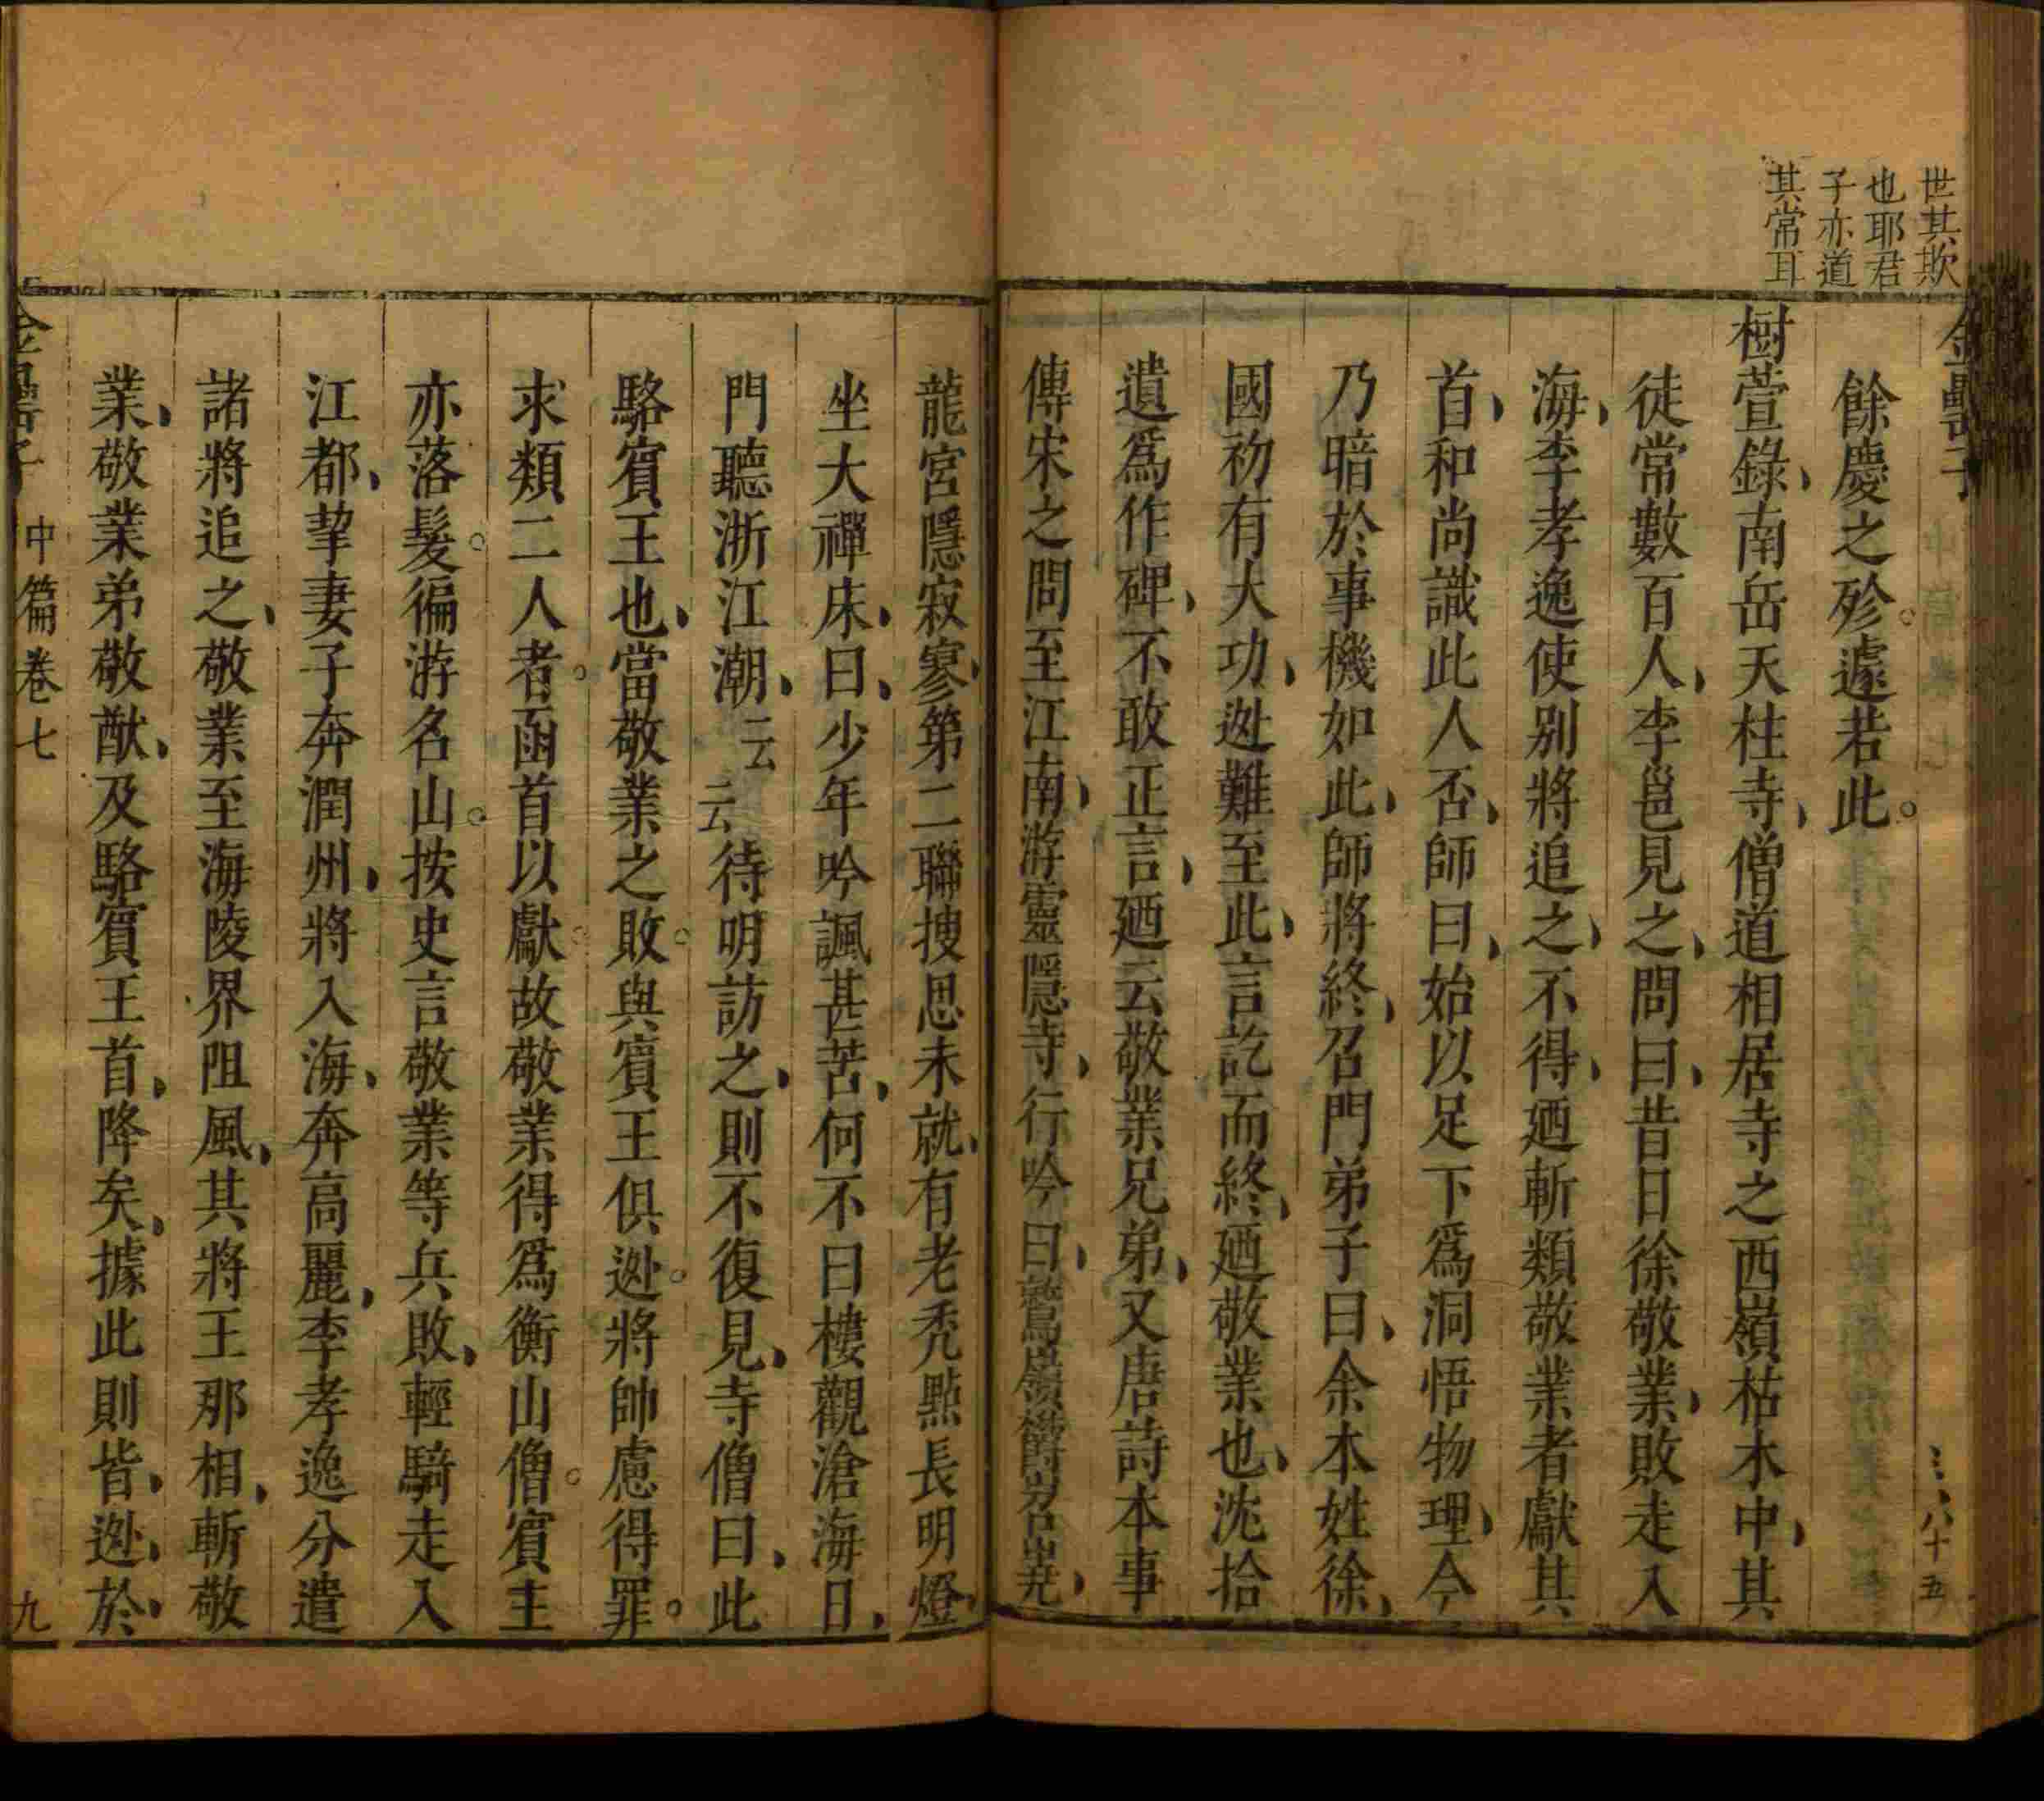 世其欺
也耶君
子亦道
其常耳
金罍子
八十五
餘慶之殄。遽若此。
樹萱錄、南岳天柱寺、僧道相居寺之西嶺枯木中、其
徒常數百人、李邕見之、問曰、昔日徐敬業、敗走入
海、李孝逸使别將追之、不得、廼斬類敬業者獻其
首、和尚識此人否、師曰、始以足下爲洞悟物理、今
乃暗於事機如此、師將終、召門弟子曰、余本姓徐、
國初有大功、迯難至此、言訖而終、廼敬業也、沈拾
遺爲作碑、不敢正言、廼云敬業兄弟、又唐詩本事
傳宋之問至江南、游靈隱寺、行吟曰、鷲嶺鬱岧嶤、
龍宮隱寂寥、第二聯搜思未就、有老禿點長明燈、
坐大禪床、曰、少年吟諷甚苦、何不曰樓觀滄海日、
門聽浙江潮、云云待明訪之、則不復見、寺僧曰、此
駱賓王也、當敬業之敗。與賓王俱迯。將帥慮得罪。
求類二人者。函首以獻。故敬業得爲衡山僧。賓王
亦落髮。徧游名山。按史言敬業等兵敗、輕騎走入
江都、挈妻子奔潤州、將入海、奔高麗、李孝逸分遣
諸將追之、敬業至海陵界阻風、其將王那相、斬敬
業、敬業弟敬猷、及駱賓王首、降矣、據此則皆、迯、於、
金罍子
中篇卷七
九